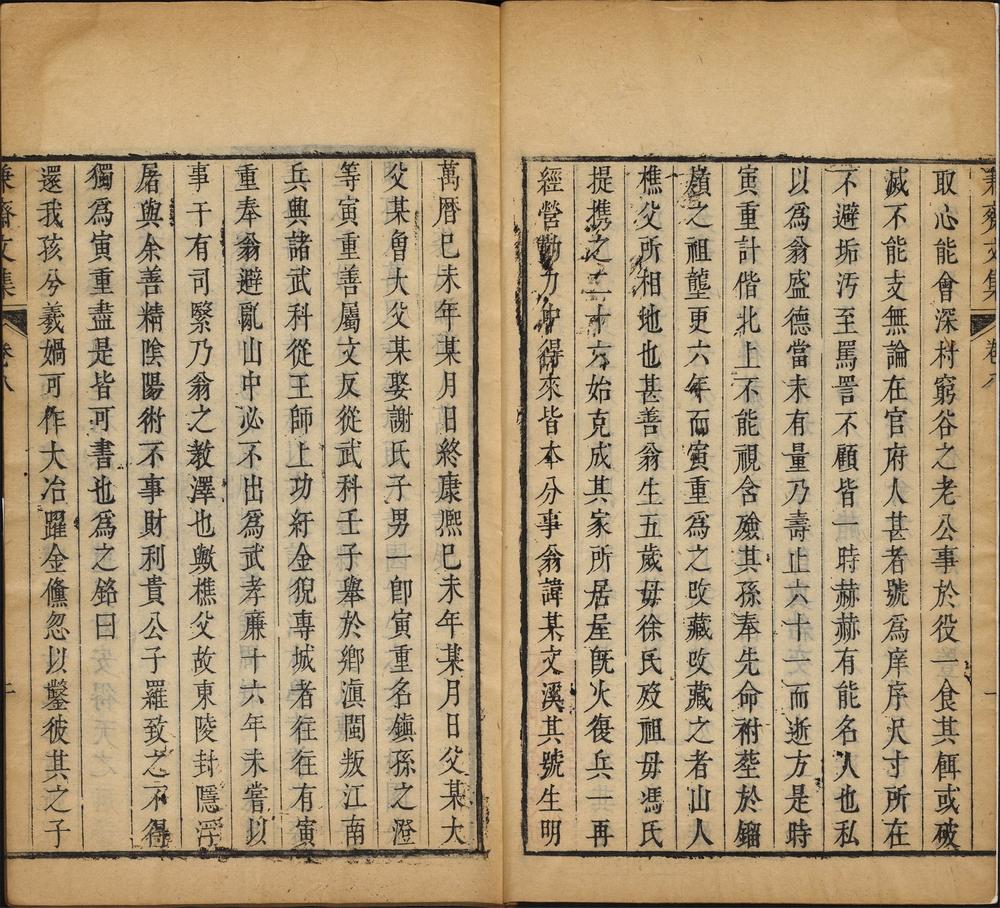 兼齋文集 卷八
取心能會深村窮谷之老公事於役一食其餌或破
滅不能支無論在官府人甚者號為庠序尺寸所在
不避垢汚至罵詈不顧皆一時赫赫有能名人也私
以為翁盛德當未有量乃壽止六十一而逝方是時
寅重計偕北上不能視含殮其孫奉先命祔塟於鎦
嶺之祖壟更六年而寅重為之攺藏攺藏之者山人
樵父所相地也甚善翁生五歲毋徐氏歿祖毋馮氏
提携之二十六始克成其家所居屋旣火復兵一再
經營勤力中得來皆本分事翁諱某文溪其號生明
萬曆巳未年某月日終康熈巳未年某月日父某大
父某魯大父某娶謝氏子男一卽寅重名鎮孫之澄
等寅重善屬文反從武科壬子舉於鄉滇閩叛江南
兵興諸武科從王師上功紆金猊專城者往往有寅
重奉翁避亂山中必不出為武孝廉十六年未嘗以
事干有司緊乃翁之教澤也歟樵父故東陵封隱浮
屠與余善精陰陽術不事財利貴公子羅致之不得
獨為寅重盡是皆可書也為之銘曰
還我孩兮羲媧可作大冶躍金儵忽以鑿彼其之子
兼齋文集 卷八